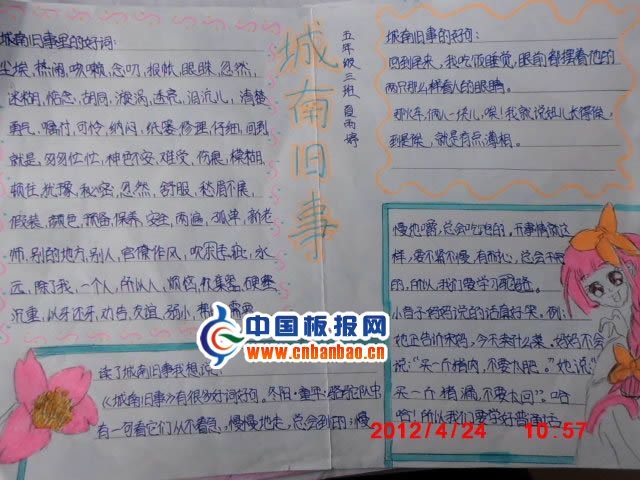 城南旧事里的好词:
尘埃,热闹,咳嗽,念叨,报帐,眼睬,忽然,
迷糊,惦念,胡同,漩涡,透亮,泪流儿,清楚
勇气,嘱咐,可怜,纳闷,纸篓,修理,仔细,回到
就是,匆匆忙忙,神色不安,难受,伤痕,模糊,
顿住,犹豫,秘密,忽然,舒服,愁眉不展,
假装,颜色,预备,保养,安全,肉遍,孤单,新老
师,别的地方,别人,官僚作风,
远,除了我,一个人,所以人,烦恼,硬要
沉重,以牙还牙,劝告,友谊,弱小,
城南旧事
五年级三班 夏雨婷
城南旧事的好句:
回到屋来,我吃饭睡觉,眼前都摆着他的
两只那么样看人的眼睛。
那火车,俩人一块儿,唉!我就说妞儿长得像
到是像,就是有点薄相。
读了城南旧事我想说:
《城南旧事》有很多好词好句。冬阳·童年·骆驼队中
有一句看它们从不着急,慢慢地走,总会到的;慢
慢地嚼,总会吃饱的。干事情就这
样,要不紧不慢,有耐心,总会干完
的,所以我们要学习骆驼。
小英子妈妈说的话真好笑。例:
她正告诉宋妈,今天买什么菜,妈妈不会
说:“买一斤猪肉,不要太肥。”她说:“
买一斤租漏,不要太回”。哈
哈!所以我们要学好普通话
中国板报网
www.cnbanbao.cn
2012/4/24 10:57